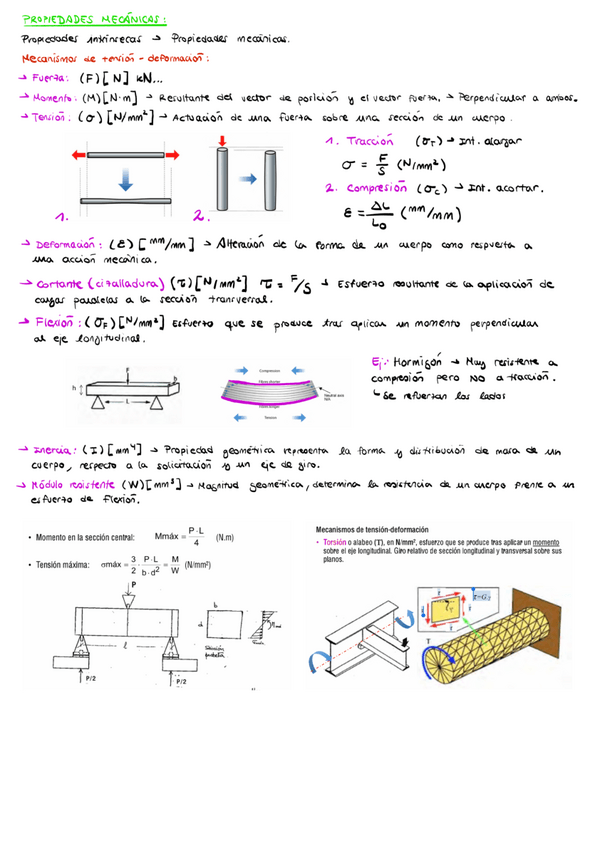 PROPIEDADES MECÁNICAS:
Propiedades intrínsecas → Propiedades mecánicas.
Mecanismos de tensión - deformación:
→ Fuerza: (F)[N] kN...
→ Momento: (M)[N·m] → Resultante del vector de posición y el vector fuerza, → Perpendicular a ambos.
→ Tensión: (σ)[N/mm²] → Actuación de una fuerza sobre una sección de un cuerpo.
1. Tracción (σT) → Int. alargar
σ = F/S (N/mm²)
2. Compresión (σc) → Int. acortar.
ε = ΔL/L0 (mm/mm)
1.
2.
→ Deformación: (ε) [mm/mm] → Alteración de la forma de un cuerpo como respuesta a
una acción mecánica.
→ Cortante (cizalladura) (τ)[N/mm²] τ = F/S → Esfuerzo resultante de la aplicación de
cargas paralelas a la sección transversal.
→ Flexión: (σF)[N/mm²] Esfuerzo que se produce tras aplicar un momento perpendicular
al eje longitudinal.
F
b
h
L
Compression
Neutral axis
Tension
Ej: Hormigón → Muy resistente a
compresión pero NO a tracción.
Se refuerzan los lados
→ Inercia: (I)[mm⁴] → Propiedad geométrica representa la forma y distribución de masa de un
cuerpo, respecto a la solicitación y un eje de giro.
→ Módulo resistente (W)[mm³] → Magnitud geométrica, determina la resistencia de un cuerpo frente a un
esfuerzo de Flexión.
• Momento en la sección central: Mmáx = P·L/4 (N.m)
• Tensión máxima: σmáx = 3/2 · P·L/b·d² = M/W (N/mm²)
P
b
d
ℓ
P/2
P/2
Mecanismos de tensión-deformación
• Torsión o alabeo (T), en N/mm², esfuerzo que se produce tras aplicar un momento
sobre el eje longitudinal. Giro relativo de sección longitudinal y transversal sobre sus
planos.
T